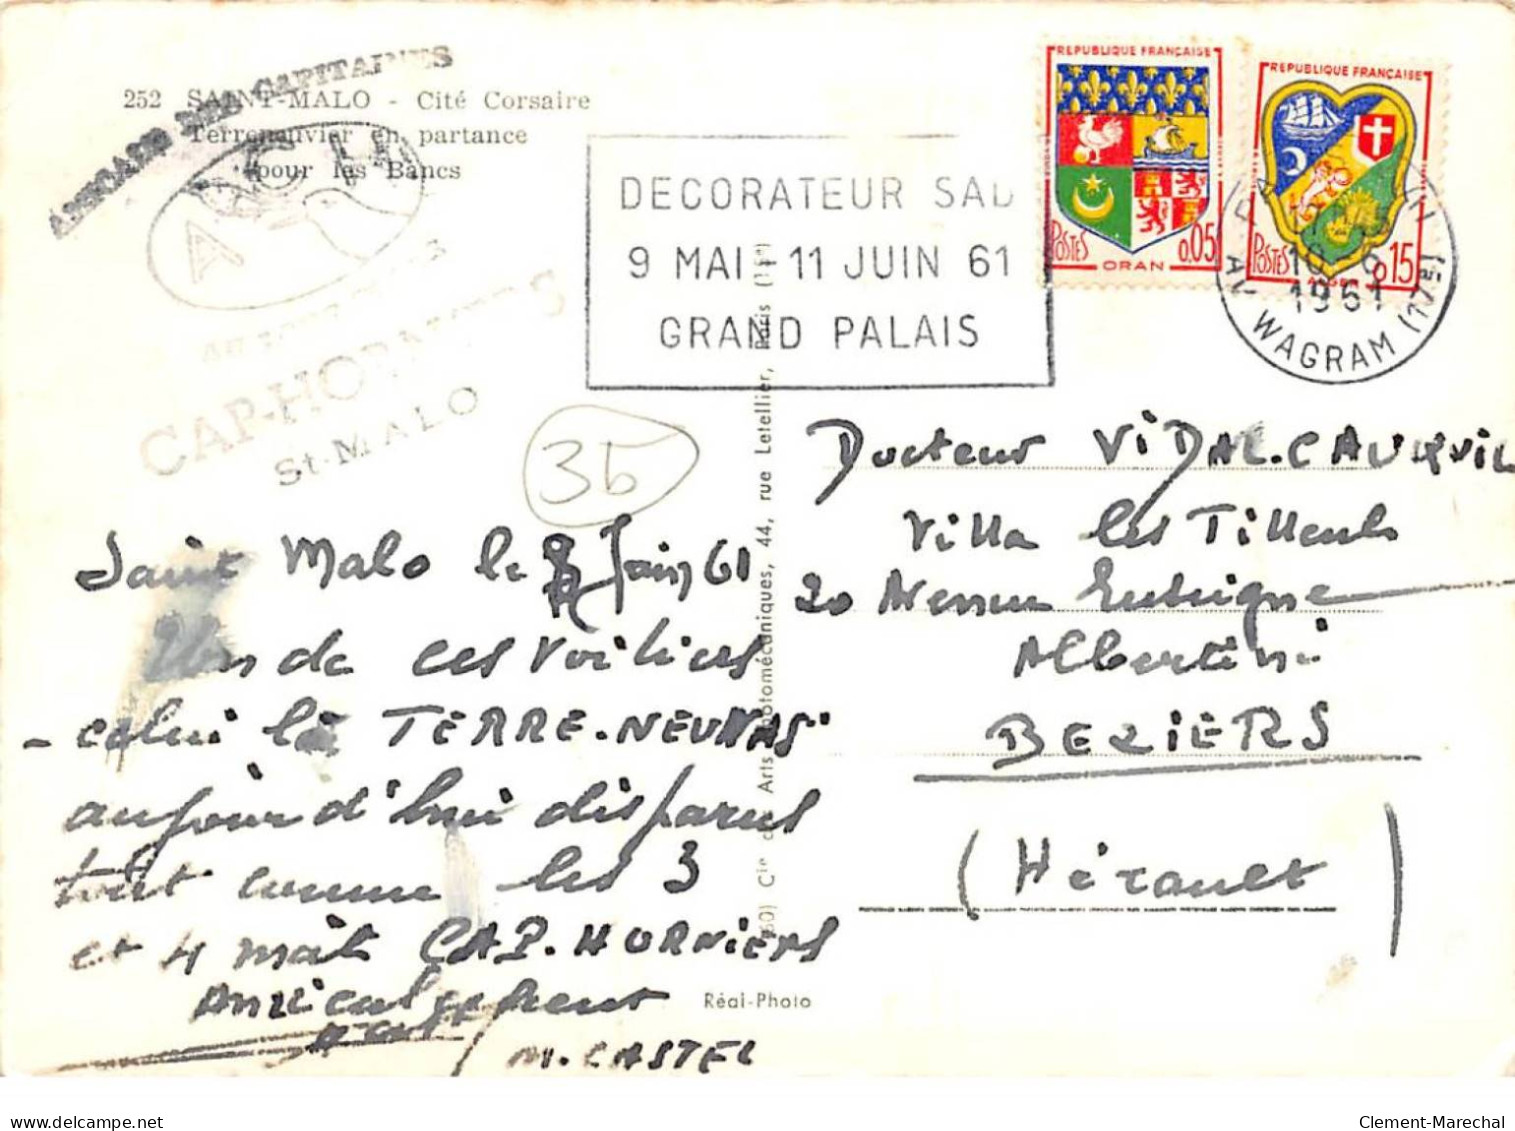 252 SAINT-MALO - Cité Corsaire
Terreneuvier en partance
pour les Bancs
CAPITAINES
CAP-HORNIERS
St-MALO
DECORATEUR
9 MAI - 11 JUIN 61
GRAND PALAIS
REPUBLIQUE FRANÇAISE
POSTES 0.05
ORAN
REPUBLIQUE FRANÇAISE
POSTES 0.15
ALGER
1961
AV. WAGRAM (17e)
35
Saint Malo le 8 Juin 61
Un de ces voiliers
- celui là TERRE-NEUVAS
aujourd'hui disparus
tout comme les 3
et 4 mâts CAP-HORNIERS
Amicalement
M. CASTEL
Docteur VIDAL-CAUQUIL
Villa les Tilleuls
20 Avenue
Albertini
BEZIERS
(Hérault)
Arts Photomécaniques, 44, rue Letellier, Paris (15e)
Réal-Photo
Clement-Marechal